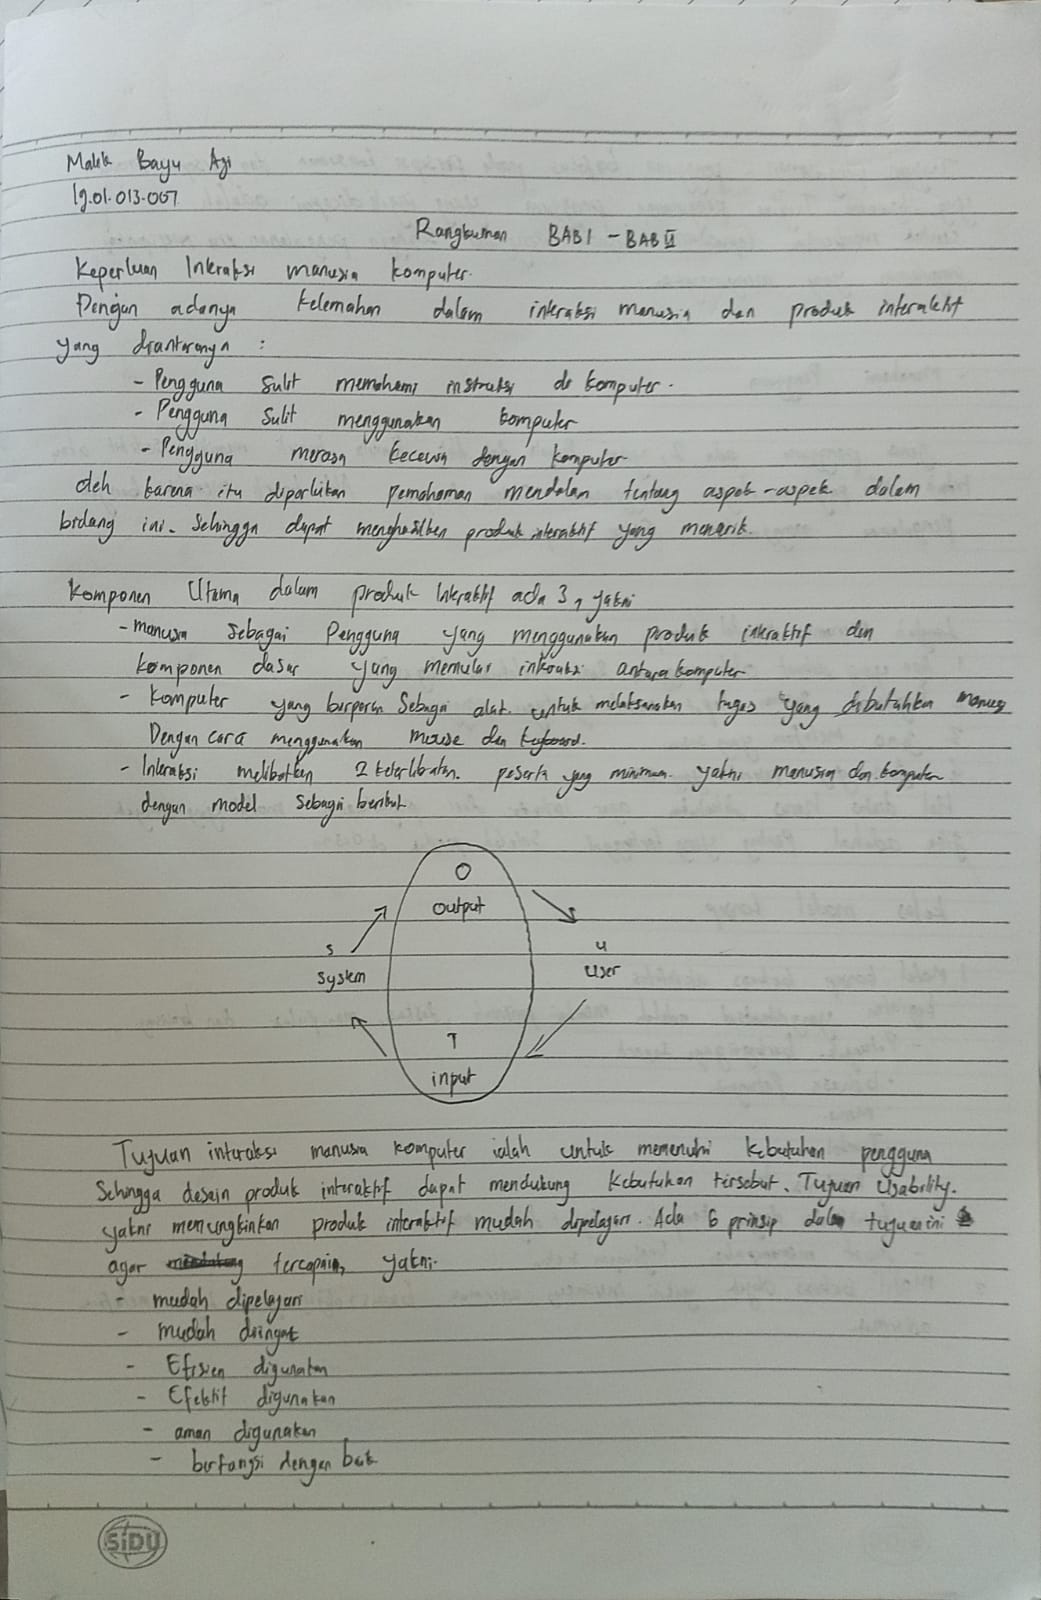 Malik Bayu Aji
19.01.013.007
Rangkuman BAB I - BAB II
Keperluan Interaksi manusia komputer.
Dengan adanya kelemahan dalam interaksi manusia dan produk interaktif
yang diantaranya :
- Pengguna sulit memahami instruksi di komputer.
- Pengguna sulit menggunakan komputer
- Pengguna merasa kecewa dengan komputer
oleh karena itu diperlukan pemahaman mendalam tentang aspek-aspek dalam
bidang ini. Sehingga dapat menghasilkan produk interaktif yang menarik.
Komponen Utama dalam produk Interaktif ada 3, yakni
- manusia sebagai Pengguna yang menggunakan produk interaktif dan
komponen dasar yang memulai interaksi antara komputer
- Komputer yang berperan Sebagai alat untuk melaksanakan tugas yang dibutuhkan manusia
Dengan cara menggunakan mouse dan keyboard.
- Interaksi melibatkan 2 keterlibatan peserta yang minimum yakni manusia dan komputer
dengan model sebagai berikut
O
output
S
system
u
user
I
input
Tujuan interaksi manusia komputer ialah untuk memenuhi kebutuhan pengguna
Sehingga desain produk interaktif dapat mendukung kebutuhan tersebut. Tujuan Usability.
yakni memungkinkan produk interaktif mudah dipelajari. Ada 6 prinsip dalam tujuan ini
agar tercapai, yakni.
- mudah dipelajari
- mudah diingat
- Efisien digunakan
- Efektif digunakan
- aman digunakan
- berfungsi dengan baik
SIDU